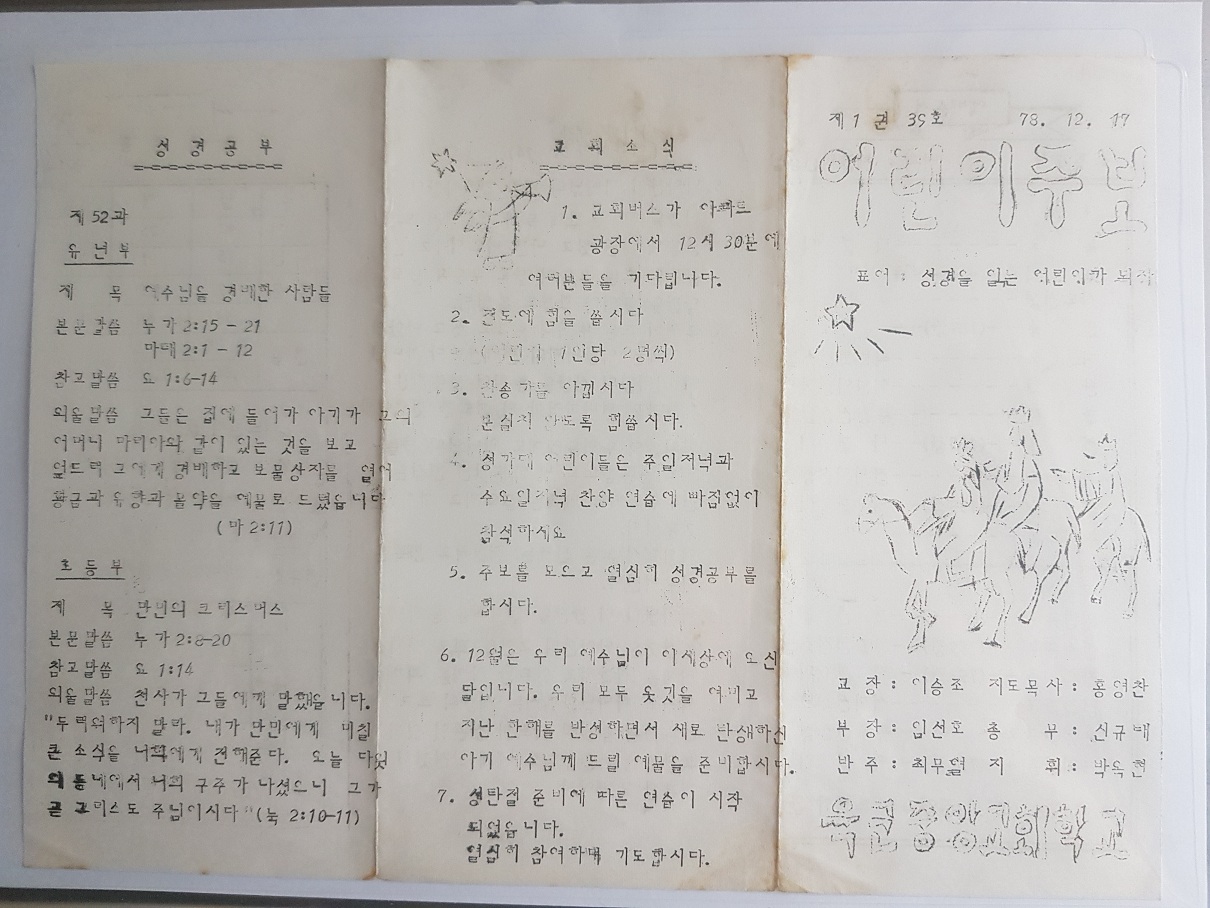 성 경 공 부
제 52과
유 년 부
제 목 예수님을 경배한 사람들
본문말씀 누가 2:15 - 21
마태 2:1 - 12
참고말씀 요 1:6-14
외울말씀 그들은 집에 들어가 아기가 그의
어머니 마리아와 같이 있는 것을 보고
엎드려 그에게 경배하고 보물상자를 열어
황금과 유향과 몰약을 예물로 드렸읍니다
(마 2:11)
초 등 부
제 목 만민의 크리스머스
본문말씀 누가 2:8-20
참고말씀 요 1:14
외울말씀 천사가 그들에게 말했읍니다.
"두려워하지 말라. 내가 만민에게 미칠
큰 소식을 너희에게 전해준다. 오늘 다윗
의 동네에서 너희 구주가 나셨으니 그가
곧 그리스도 주님이시다"(눅 2:10-11)
교 회 소 식
1. 교회버스가 아파트
광장에서 12시 30분에
여러분들을 기다립니다.
2. 전도에 힘을 씁시다
(어린이 1인당 2명씩)
3. 찬송가를 아낍시다
분실치 않도록 힘씁시다.
4. 성가대 어린이들은 주일저녁과
수요일저녁 찬양 연습에 빠짐없이
참석하세요
5. 주보를 모으고 열심히 성경공부를
합시다.
6. 12월은 우리 예수님이 이세상에 오신
달입니다. 우리 모두 옷깃을 여미고
지난 한해를 반성하면서 새로 탄생하신
아기 예수님께 드릴 예물을 준비합시다.
7. 성탄절 준비에 따른 연습이 시작
되었읍니다.
열심히 참여하며 기도합시다.
제 1 권 39호 78. 12. 17
어린이주보
표어 : 성경을 읽는 어린이가 되자
교 장 : 이승조 지도목사 : 홍영찬
부 장 : 임선호 총 무 : 신규태
반 주 : 최무열 지 휘 : 박옥현
중앙교회학교